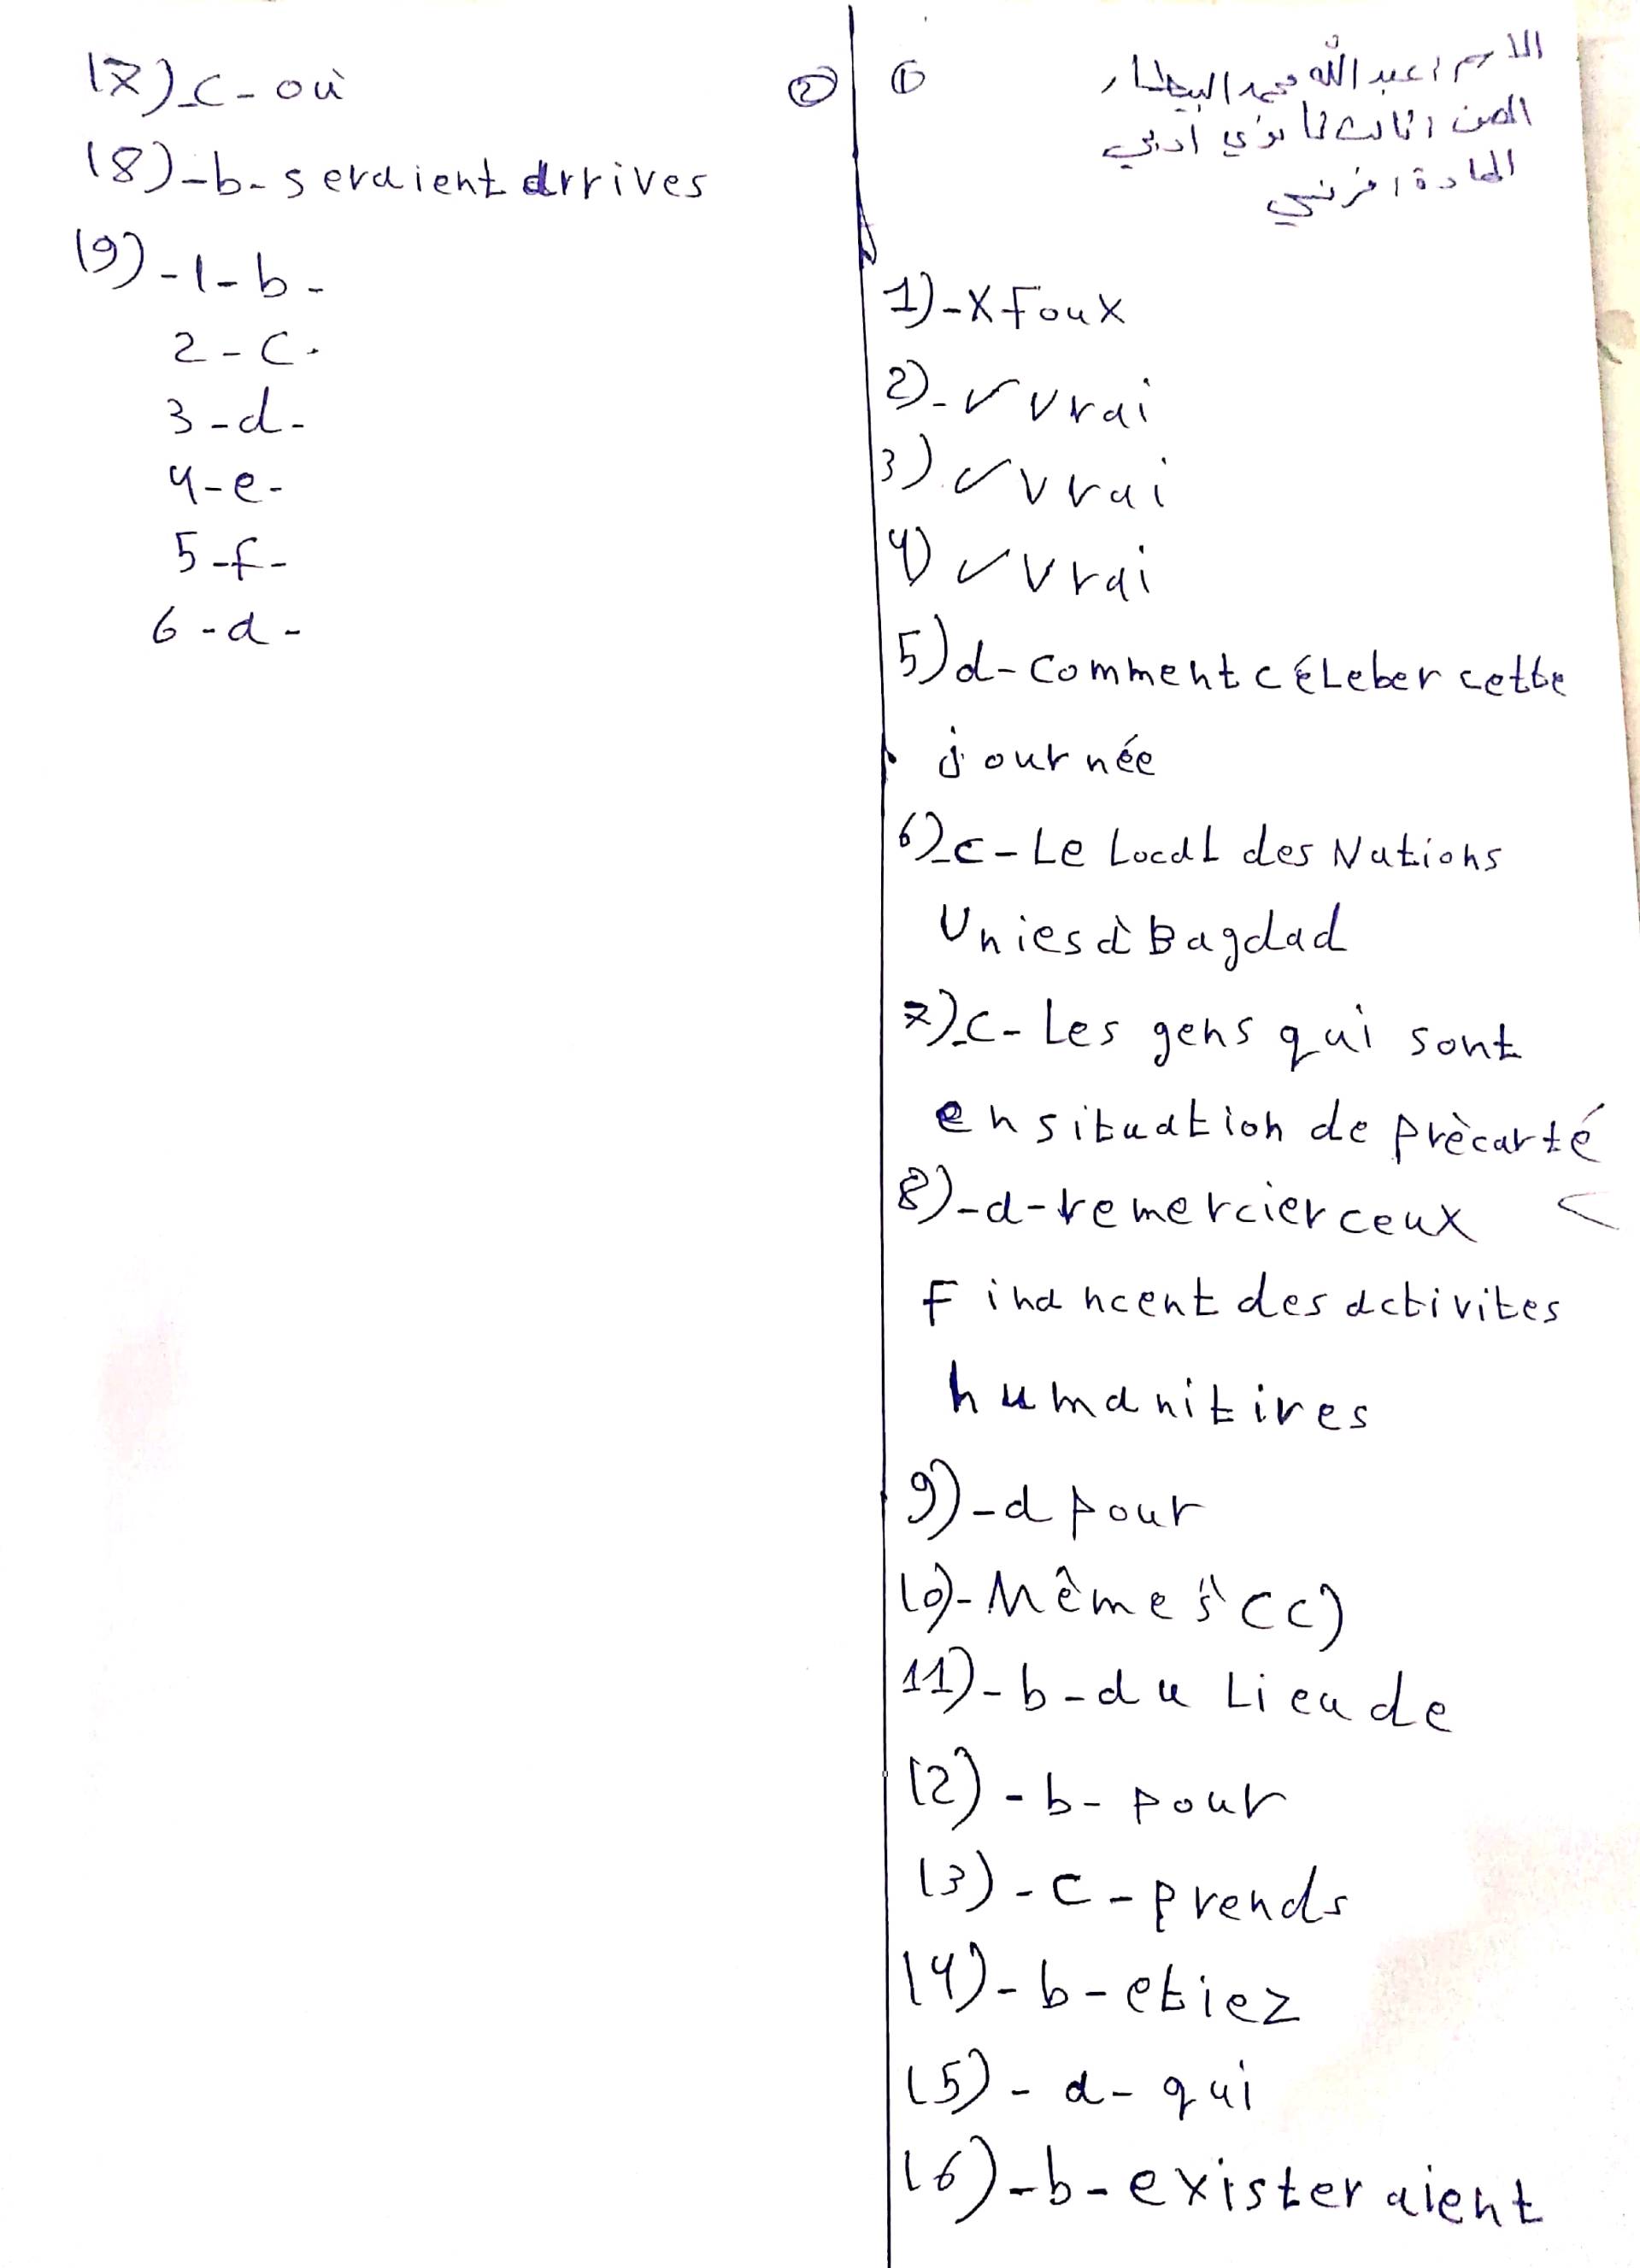 ①
الاسم / عبد الله محمد البيطار
الصف الثالث الثانوي أدبي
المادة / فرنسي
1)-X Foux
2)-✓ vrai
3) ✓ vrai
4) ✓ vrai
5) d- comment céLeber cette
journée
6)-c- Le Local des Nations
Unies à Bagdad
7)-c- Les gens qui sont
en situation de prècarté
8)-d- remercier ceux
Financent des activites
humanitires
9)-d pour
10)- Même si (c)
11)-b-du Lieu de
12)-b- pour
13)-c-prends
14)-b-etiez
15)-a-qui
16)-b-existeraient
②
17)-c-où
18)-b-seraient arrives
19)-1-b-
2-c-
3-d-
4-e-
5-f-
6-a-